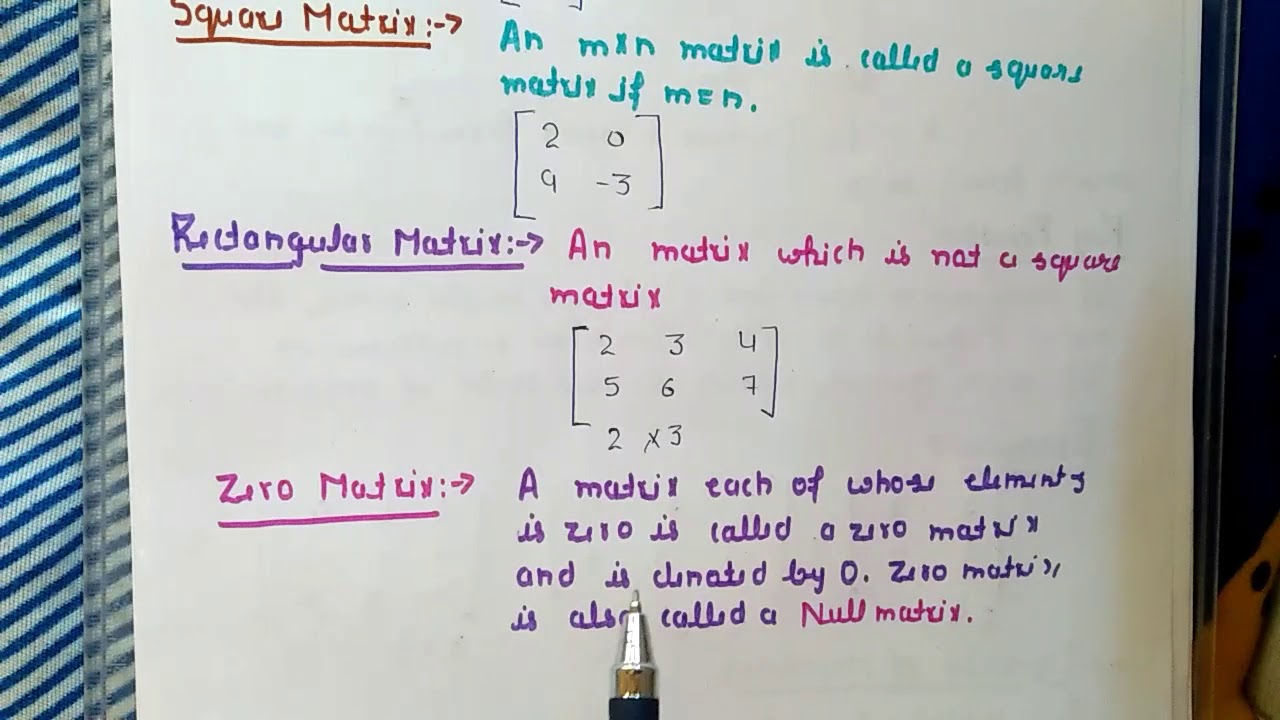 Square Matrix:->
An mxn matrix is called a square
matrix if m=n.
[2 0
9 -3]
Rectangular Matrix:-> An matrix which is not a square
matrix
[2 3 4
5 6 7]
2 x 3
Zero Matrix:-> A matrix each of whose elements
is zero is called a zero matrix
and is denoted by O. Zero matrix
is also called a Null matrix.